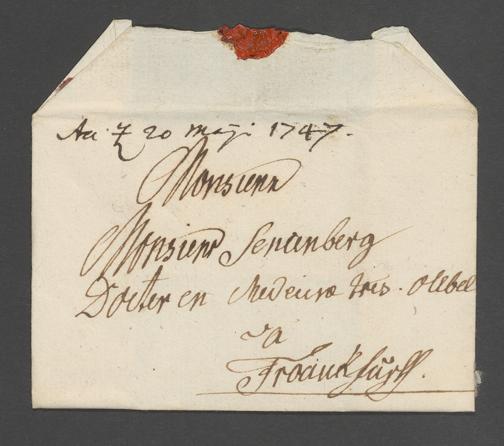 20 Maji 1747.
Monsieur
Monsieur Senckenberg
Docter en Medecine tres. Celbel
a
Franckfurth.